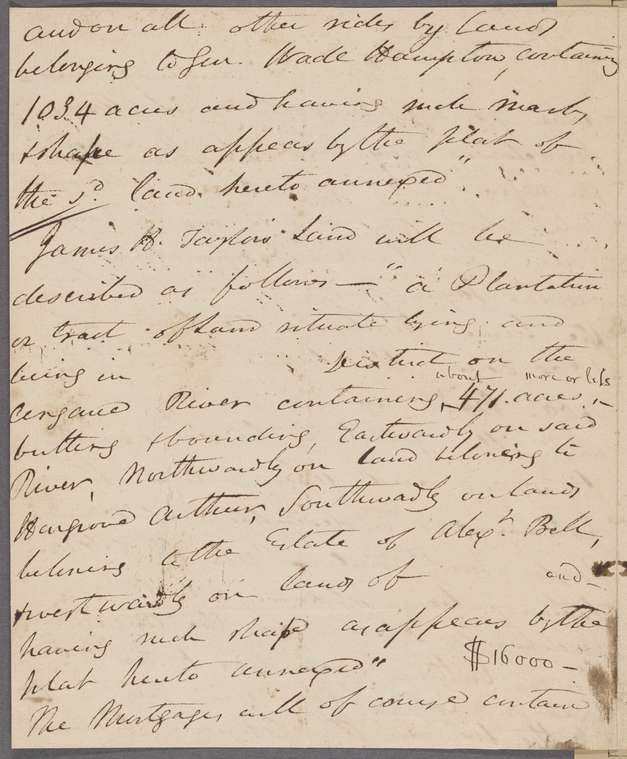 and on all other sides by lands
belonging to Gen. Wade Hampton, containing
1034 acres and having such marks
& shape as appears by the plat of
the sd. land hereto annexed"
James H. Taylor's Land will be
described as follows — "a Plantation
or tract of Land situate lying and
being in District on the
Congaree River containing about 471 acres, more or less –
butting & bounding, Eastwardly on said
River, Northwardly on land beloning to
Hargrove Arthur, Southwardly on lands
beloning to the Estate of Alexr. Bell,
& westwardly on lands of and –
having such shape as appears by the
plat hereto annexed" $16000 –
The Mortgages will of course contain